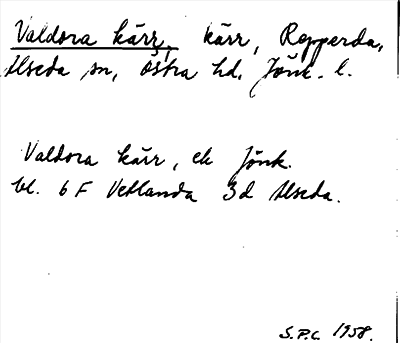 Valdora kärr, kärr, Repperda,
Alseda sn, Östra hd, Jönk. l.
Valdora kärr, ek Jönk.
bl. 6 F Vetlanda 3d Alseda.
S.P.C. 1958.